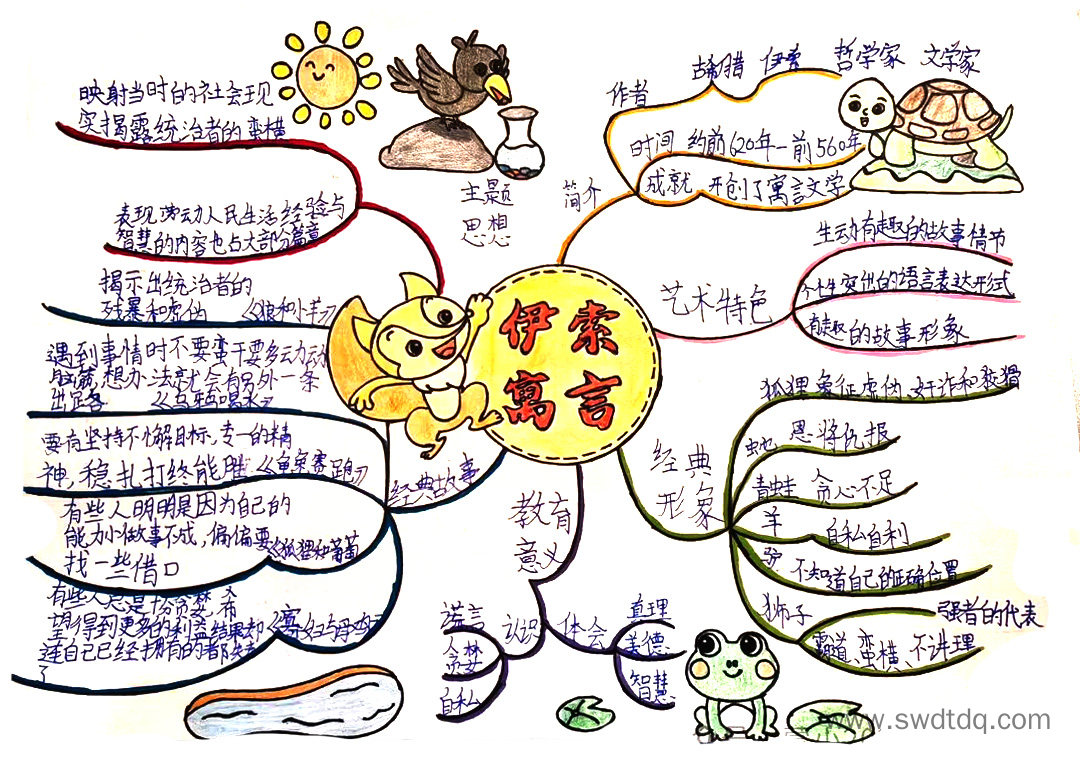 伊索
寓言
简介
作者
古希腊 伊索 哲学家 文学家
时间 约前620年-前560年
成就 开创了寓言文学
艺术特色
生动有趣的故事情节
个性突出的语言表达形式
有趣的故事形象
经典
形象
狐狸象征虚伪、奸诈和狡猾
蛇 恩将仇报
青蛙 贪心不足
羊 自私自利
驴 不知道自己的正确位置
狮子
强者的代表
霸道、蛮横、不讲理
教育
意义
认识
谎言
贪婪
自私
体会
真理
美德
智慧
经典故事
揭示出统治者的
残暴和虚伪 《狼和小羊》
遇到事情时不要蛮干要多动动
脑筋,想办法就会有另外一条
出路 《乌鸦喝水》
要有坚持不懈目标,专一的精
神,稳扎打终能胜《龟兔赛跑》
有些人明明是因为自己的
能力小做事不成,偏偏要《狐狸和葡萄
找一些借口
有些人总是十分贪婪,希
望得到更多的利益结果却《寡妇与母鸡》
连自己已经拥有的都失去
了
主题
思想
映射当时的社会现
实揭露统治者的蛮横
表现劳动人民生活经验与
智慧的内容也占大部分篇章
www.swdtdq.com